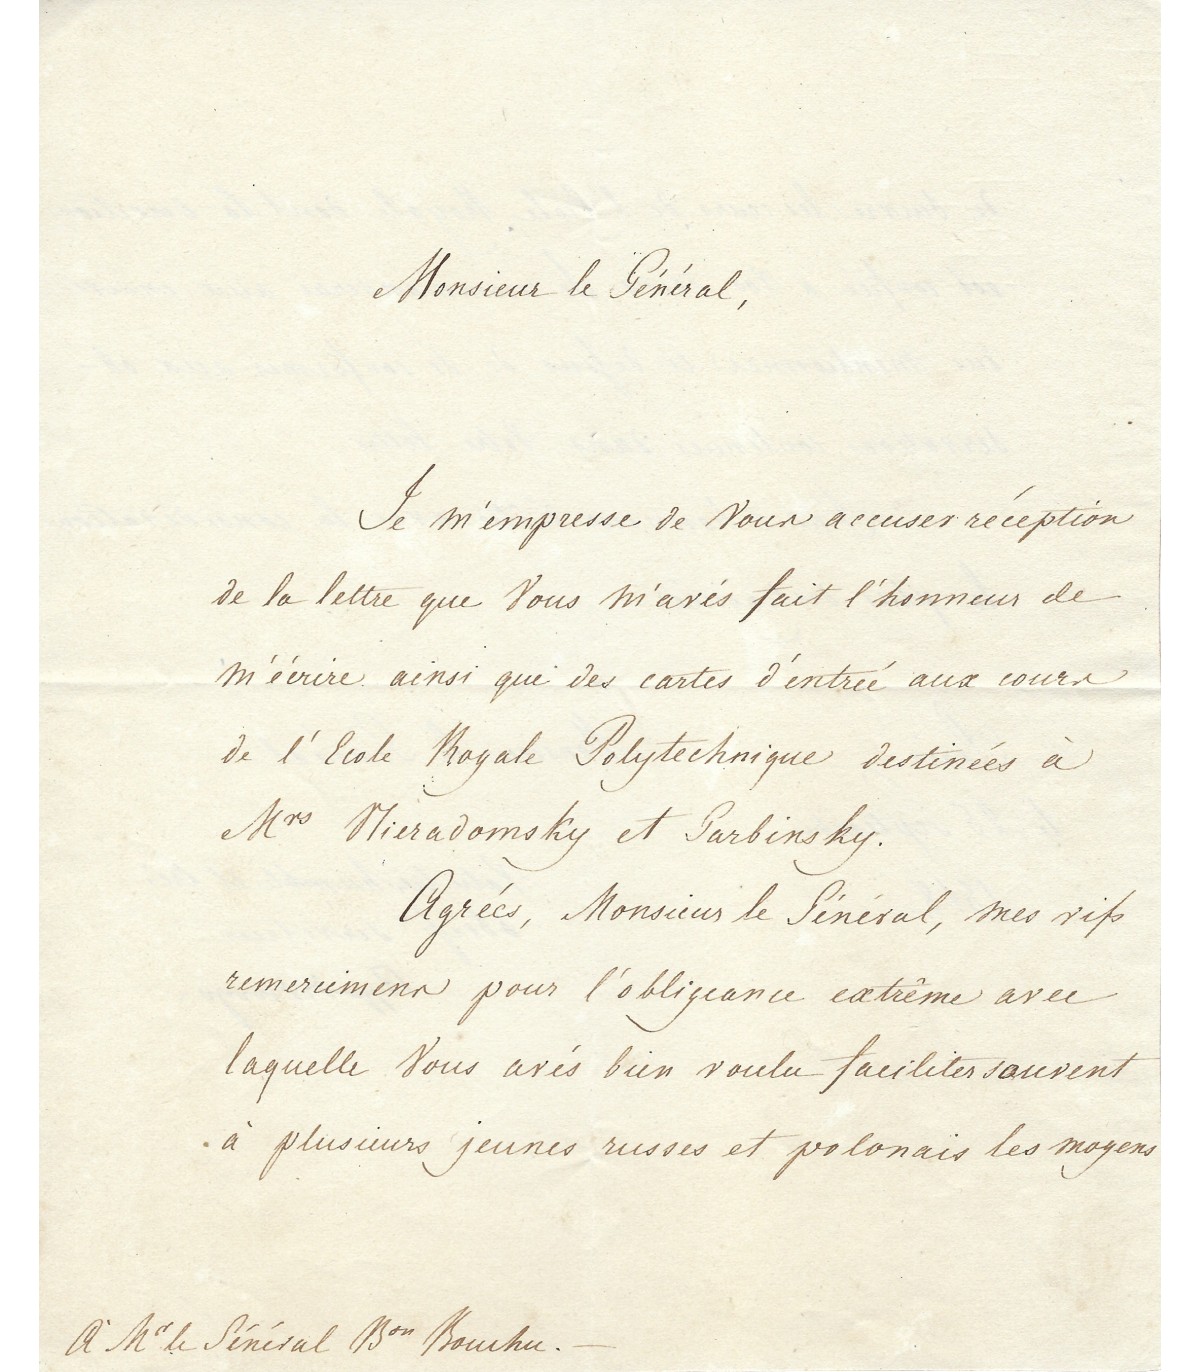 Monsieur le Général,
Je m'empresse de Vous accuser réception
de la lettre que Vous m'avés fait l'honneur de
m'écrire ainsi que des cartes d'entrée aux cours
de l'Ecole Royale Polytechnique destinées à
Mrs Nieradomsky et Garbinsky.
Agréés, Monsieur le Général, mes vifs
remercimens pour l'obligeance extrême avec
laquelle Vous avés bien voulu faciliter souvent
à plusieurs jeunes russes et polonais les moyens
À Mr le Général Bon Bouchu. —